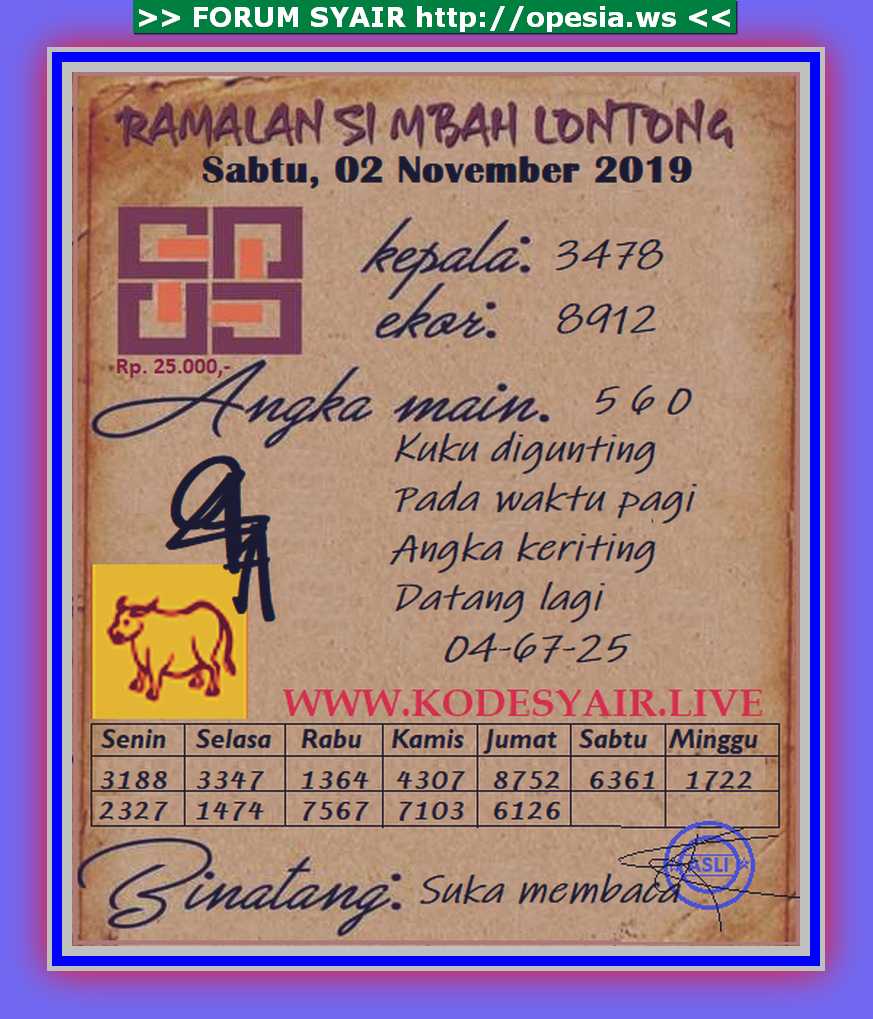 >> FORUM SYAIR http://opesia.ws <<
RAMALAN SI MBAH LONTONG
Sabtu, 02 November 2019
kepala: 3478
ekor: 8912
Rp. 25.000,-
Angka main. 5 6 0
Kuku digunting
Pada waktu pagi
Angka keriting
Datang lagi
04-67-25
WWW.KODESYAIR.LIVE
Senin Selasa Rabu Kamis Jumat Sabtu Minggu
3188 3347 1364 4307 8752 6361 1722
2327 1474 7567 7103 6126
Binatang: Suka membaca
ASLI